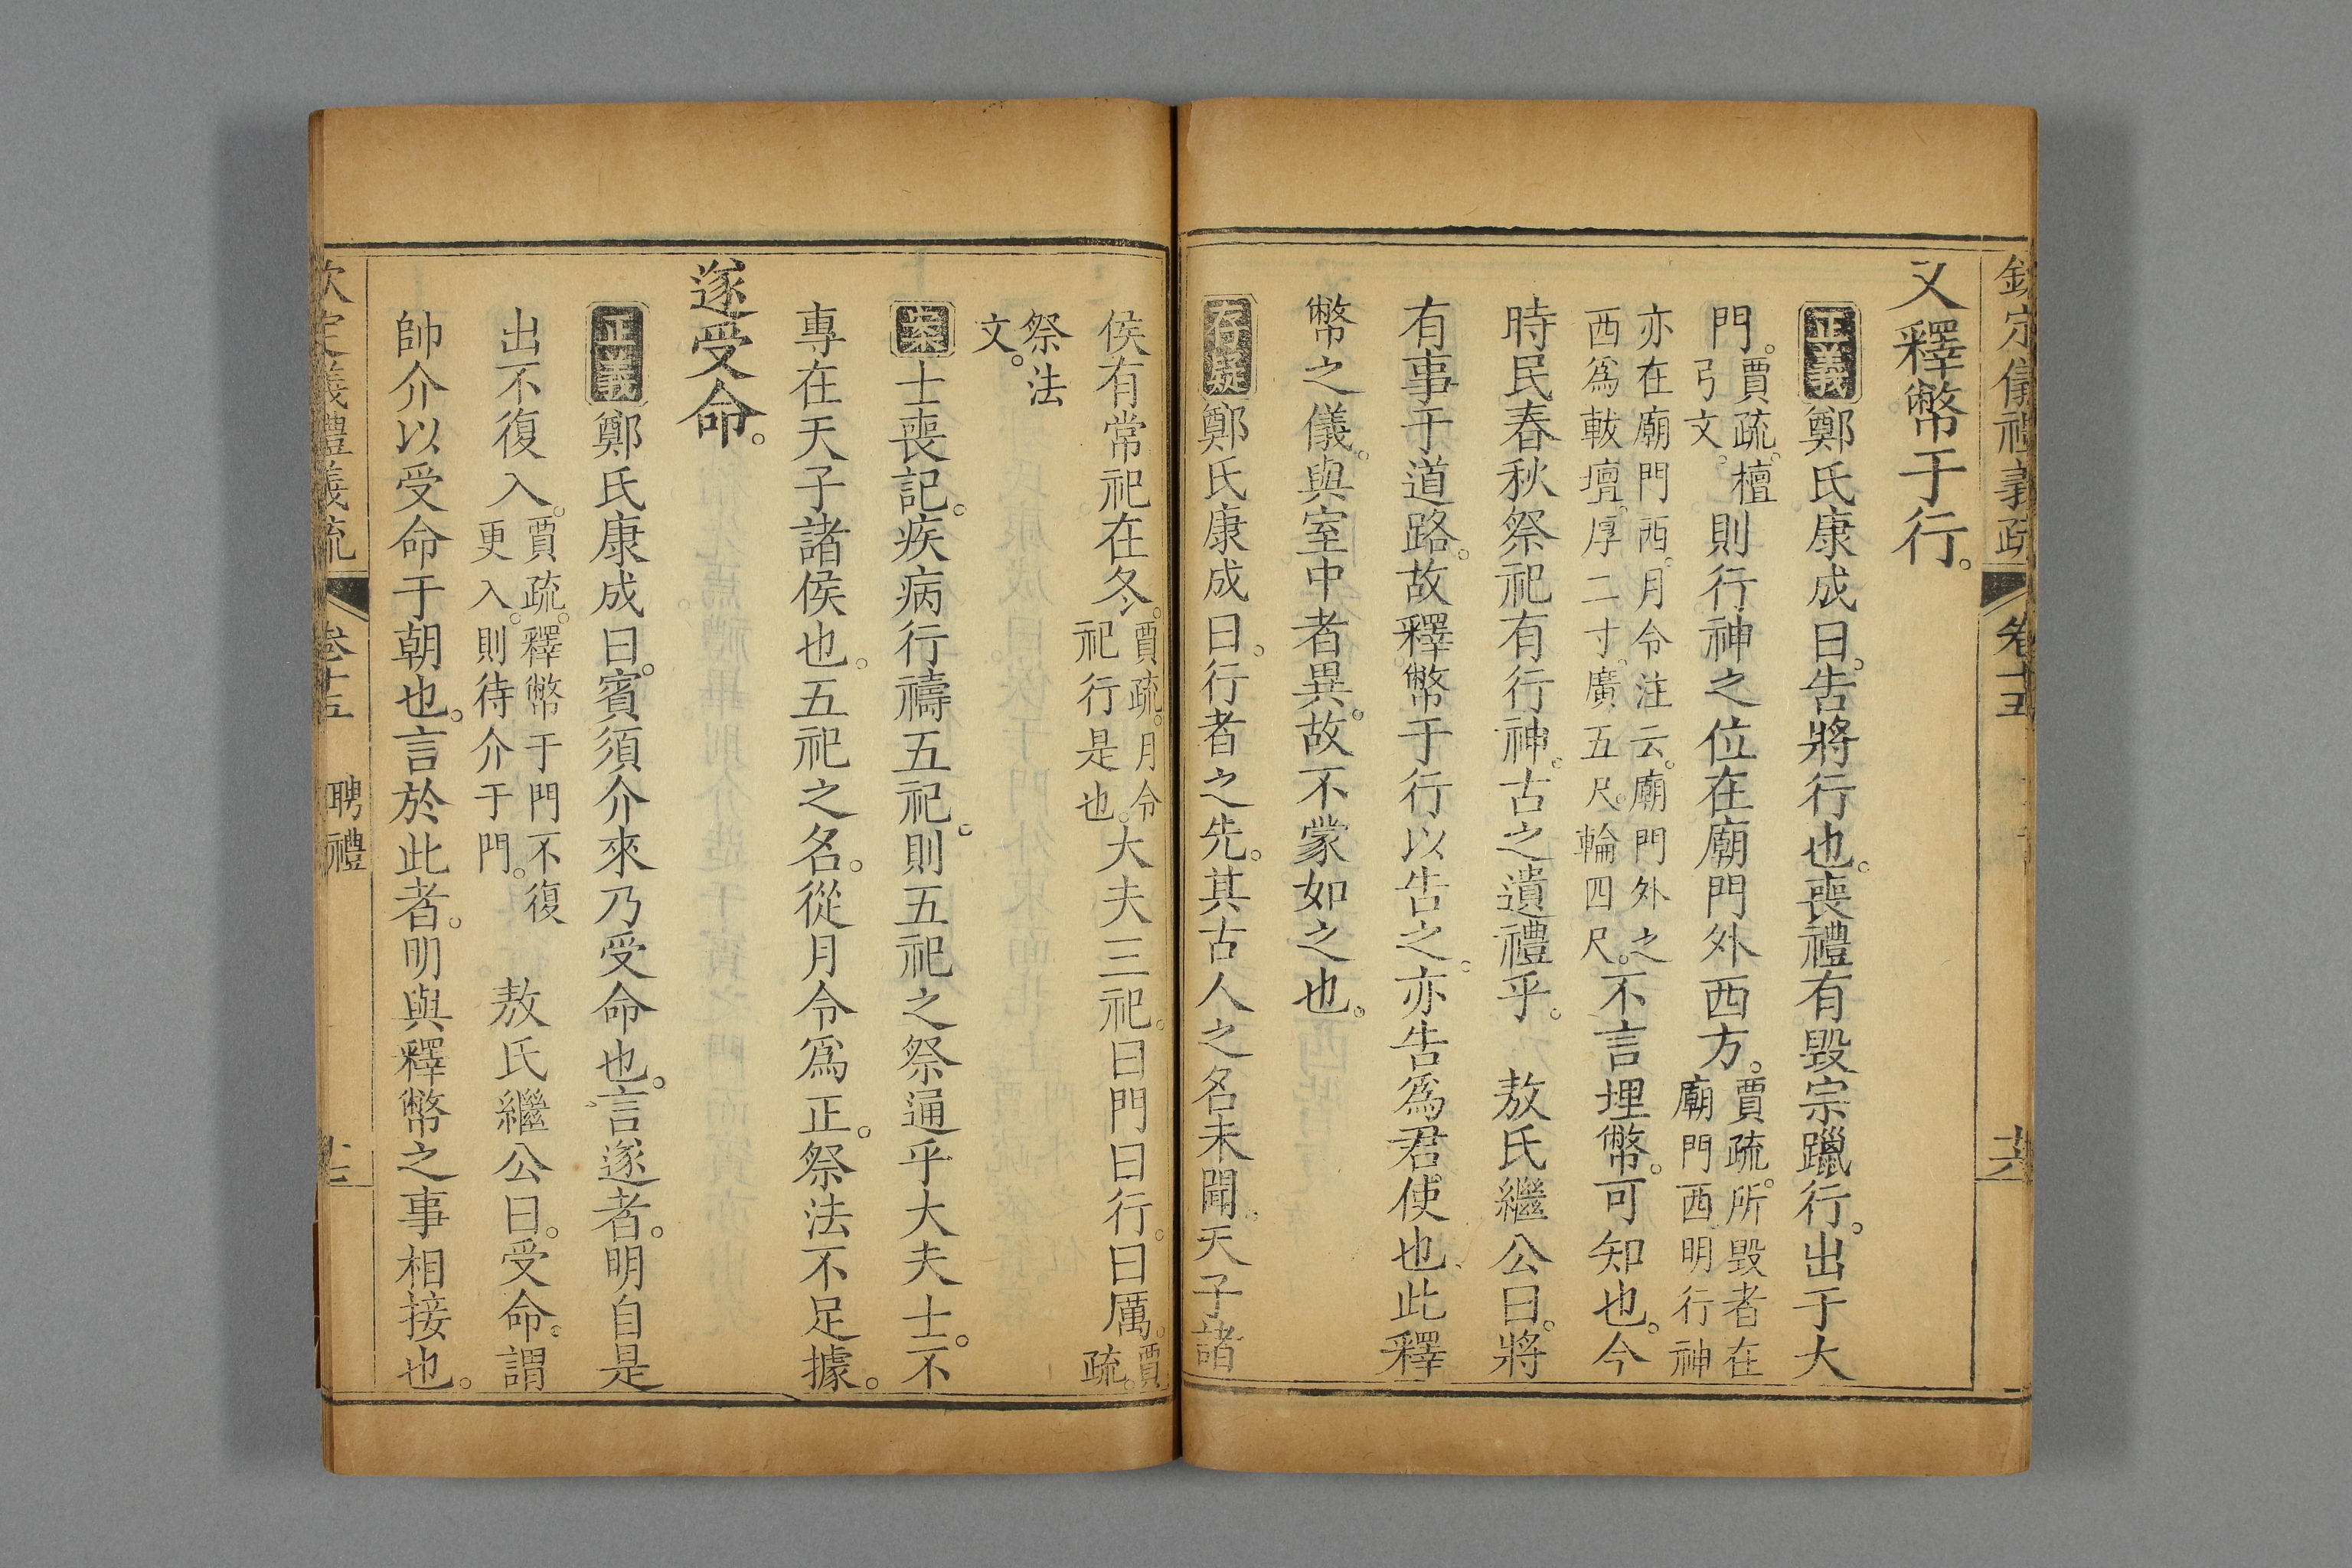 欽定儀禮義疏 卷十五 十六
又釋幣于行。
正義鄭氏康成曰。告將行也。喪禮有毀宗躐行。出于大
門。賈疏。檀弓文。則行神之位在廟門外西方。賈疏。所毀者在廟門西。明行神
亦在廟門西。月令注云。廟門外之西爲軷壇。厚二寸。廣五尺。輪四尺。不言埋幣。可知也。今
時民春秋祭祀有行神。古之遺禮乎。 敖氏繼公曰。將
有事于道路。故釋幣于行以告之。亦告爲君使也。此釋
幣之儀。與室中者異。故不蒙如之也。
存疑鄭氏康成曰。行者之先。其古人之名未聞。天子諸
侯有常祀在冬。賈疏。月令祀行是也。大夫三祀。曰門曰行。曰厲。賈疏。
祭法文。
案士喪記。疾病行禱五祀。則五祀之祭通乎大夫士。不
專在天子諸侯也。五祀之名。從月令爲正。祭法不足據。
遂受命。
正義鄭氏康成曰。賓須介來乃受命也。言遂者。明自是
出不復入。賈疏。釋幣于門不復更入。則待介于門。 敖氏繼公曰。受命。謂
帥介以受命于朝也。言於此者。明與釋幣之事相接也。
欽定儀禮義疏 卷十五 聘禮 十七